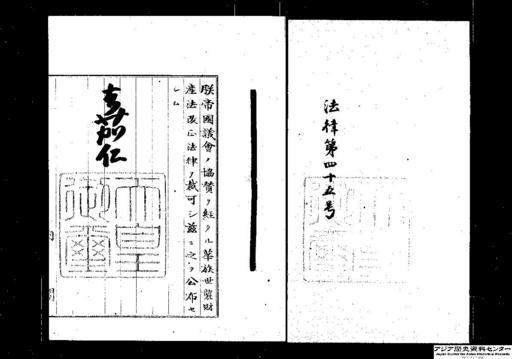 法律第四十五号
朕帝國議會ノ協賛ヲ經タル華族世襲財
産法改正法律ヲ裁可シ茲ニ之ヲ公布セ
シム
嘉仁
天皇
御璽
内閣
アジア歴史資料センター
Japan Center for Asian Historical Records